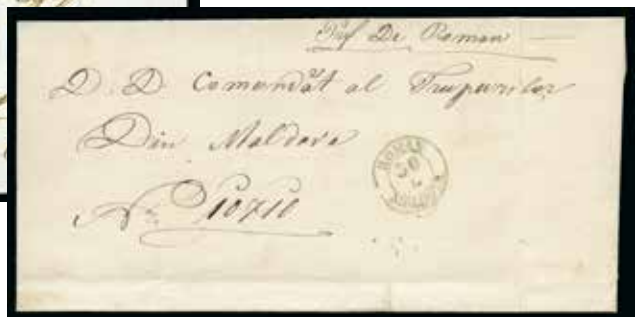 Pref De Roman
D. D. Comandāt al Trupurilor
Din Moldova
No 10710
ROMAN
MOLDOVA